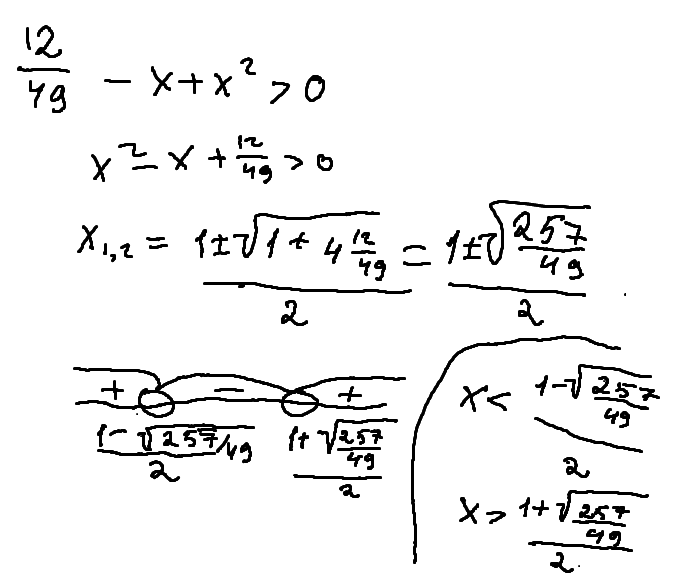 12/49 − x + x² > 0
x² − x + 12/49 > 0
x₁,₂ = (1 ± √(1 + 4 12/49))/2 = (1 ± √(257/49))/2
+ − +
(1 − √(257/49))/2 (1 + √(257/49))/2
x < (1 − √(257/49))/2
x > (1 + √(257/49))/2